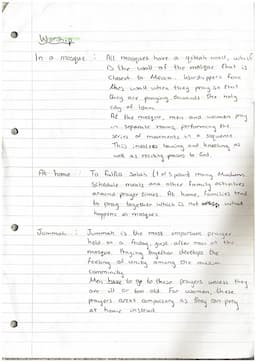 Worship
In a mosque : All mosques have a qiblah wall, which
is the wall of the mosque that is
closest to Mecca. Worshippers face
this wall when they pray so that
they are praying towards the holy
city of Islam.
At the mosque, men and women pray
in separate rooms, performing the
series of movements in a sequence.
This involves bowing and kneeling as
well as reciting praises to God.
At home : To fulfil Salah (1 of 5 pillars) many Muslims
schedule meals and other family activities
around prayer times. At home, families tend
to pray together which is not what
happens in mosques.
Jummah : Jummah is the most important prayer
held on a Friday, just after noon at the
mosque. Praying together develops the
feeling of unity among the muslim
community.
Men have to go to these prayers unless they
are ill or too old. For women, these
prayers aren't compulsory as they can pray
at home instead.